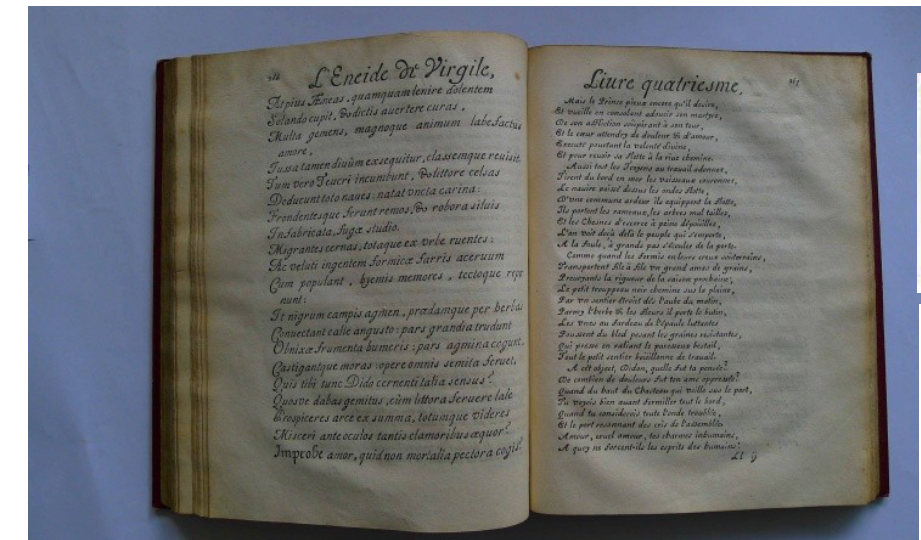 L'Eneide de Virgile,
At pius Æneas, quamquam lenire dolentem
Solando cupit, & dictis auertere curas,
Multa gemens, magnoque animum labefactus
amore,
Iussa tamen diuûm exsequitur, classemque reuisit.
Tum vero Teucri incumbunt, & littore celsas
Deducunt toto naues: natat vncta carina:
Frondentesque ferunt remos, & robora siluis
Infabricata, fugæ studio.
Migrantes cernas, totaque ex vrbe ruentes:
Ac veluti ingentem formicæ farris aceruum
Cum populant, hyemis memores, tectoque repo
nunt:
It nigrum campis agmen, prædamque per herbas
Conuectant calle angusto: pars grandia trudunt
Obnixæ frumenta humeris: pars agmina cogunt,
Castigantque moras: opere omnis semita feruet.
Quis tibi tunc Dido cernenti talia sensus?
Quosve dabas gemitus, cùm littora feruere latè
Prospiceres arce ex summa, totumque videres
Misceri ante oculos tantis clamoribus æquor?
Improbe amor, quid non mortalia pectora cogis?
Liure quatriesme,
Mais le Prince pieux encore qu'il desire,
Et vueille en consolant adoucir son martyre,
De son affliction soûpirant à son tour,
Et le cœur attendry de douleur & d'amour,
Execute pourtant la volonté diuine,
Et pour reuoir sa flotte à la riue chemine.
Aussi tost les Troyens au trauail adonnez,
Tirent du bord en mer les vaisseaux couronnez,
Le nauire poissé dessus les ondes flotte,
D'vne commune ardeur ils equippent la flotte,
Ils portent les rameaux, les arbres mal taillez,
Et les Chesnes d'escorce à peine dépoüillez,
L'on voit deçà delà le peuple qui s'emporte,
A la foule, à grands pas s'écouler de la porte.
Comme quand les formis en leurs creux soûterrains,
Transportent file à file vn grand amas de grains,
Preuoyants la rigueur de la saison prochaine,
Le petit trouppeau noir chemine sur la plaine,
Par vn sentier étroit dés l'aube du matin,
Parmy l'herbe & les fleurs il porte le butin,
Les vnes au fardeau de l'épaule luttantes
Poussent du bled pesant les graines resistantes,
Qui presse en
Tout le petit sentier boüillonne de trauail.
A cét object, Didon, quelle fut ta pensée?
De combien de douleurs fut ton ame oppressée?
Quand du haut du Chasteau qui veille sur le port,
Tu voyois bien auant formiller tout le bord,
Quand tu considerois toute l'onde troublée,
Et le port resonnant des cris de l'assemblée.
Amour, cruel amour, tes charmes inhumains,
A quoy ne forcent-ils les esprits des humains?
Ll ij